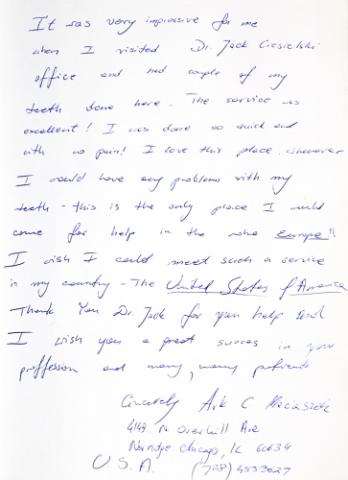 It was very impressive for me
when I visited Dr. Jack Ciesielski
office and had couple of my
teeth done here. The service was
excellent! I was done so quick and
with no pain! I love this place. whenever
I would have any problems with my
teeth - this is the only place I would
come for help in the whole europe!!
I wish I could meet such a service
in my country - The United States of America
Thank You Dr. Jack for your help and
I wish you a great succes in your
proffession and many, many patients
Cincerely Ark C
4149 N Overhill Ave
Norridge Chicago, IL 60634
U.S.A. (708) 4533627